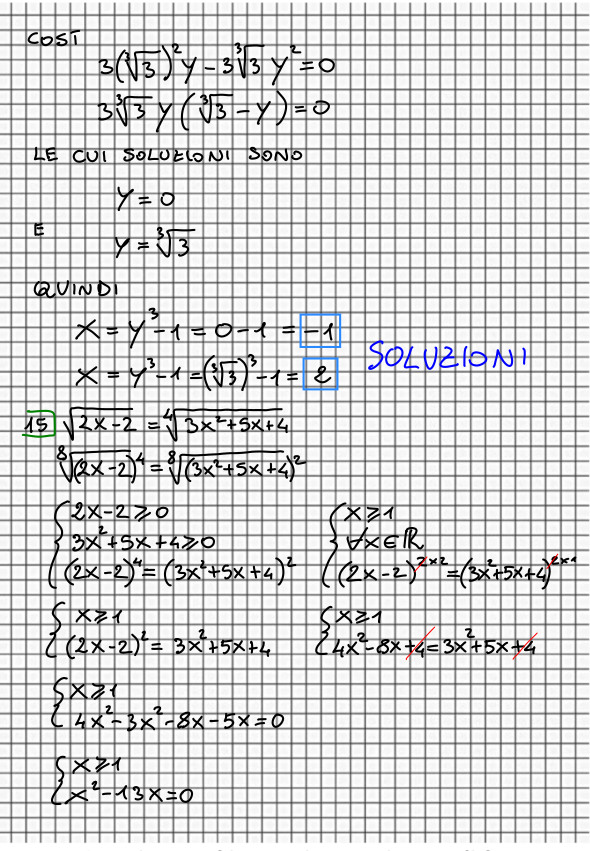 COSÌ
3(∛3)²y - 3∛3 y² = 0
3∛3 y (∛3 - y) = 0
LE CUI SOLUZIONI SONO
y = 0
E
y = ∛3
QUINDI
x = y³ - 1 = 0 - 1 = -1
x = y³ - 1 = (∛3)³ - 1 = 2
SOLUZIONI
15 √(2x-2) = ⁴√(3x²+5x+4)
⁸√(2x-2)⁴ = ⁸√(3x²+5x+4)²
{ 2x-2 ≥ 0
3x²+5x+4 ≥ 0
(2x-2)⁴ = (3x²+5x+4)²
{ x ≥ 1
∀x∈ℝ
(2x-2)^(2×2) = (3x²+5x+4)^(2×1)
{ x ≥ 1
(2x-2)² = 3x²+5x+4
{ x ≥ 1
4x²-8x+4 = 3x²+5x+4
{ x ≥ 1
4x²-3x²-8x-5x = 0
{ x ≥ 1
x²-13x = 0